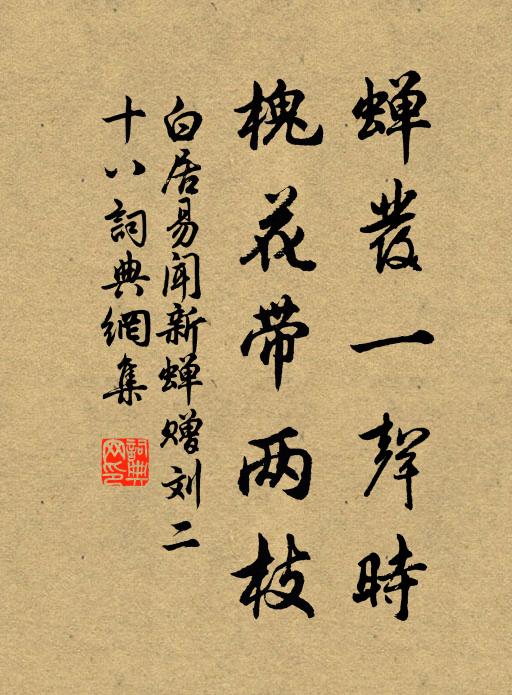 蝉發一聲時
槐花带两枝
白居易闻新蝉赠刘二
十八詞典網集
詞典
网印